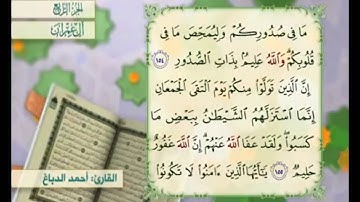 الجزء الرابع
آل عمران
مَا فِي صُدُورِكُمْ وَلِيُمَحِّصَ مَا فِي
قُلُوبِكُمْ وَاللَّهُ عَلِيمٌ بِذَاتِ الصُّدُورِ ١٥٤
إِنَّ الَّذِينَ تَوَلَّوْا مِنكُمْ يَوْمَ الْتَقَى الْجَمْعَانِ
إِنَّمَا اسْتَزَلَّهُمُ الشَّيْطَانُ بِبَعْضِ مَا
كَسَبُوا وَلَقَدْ عَفَا اللَّهُ عَنْهُمْ إِنَّ اللَّهَ غَفُورٌ
حَلِيمٌ ١٥٥ يَا أَيُّهَا الَّذِينَ آمَنُوا لَا تَكُونُوا
القارئ: أحمد الدباغ